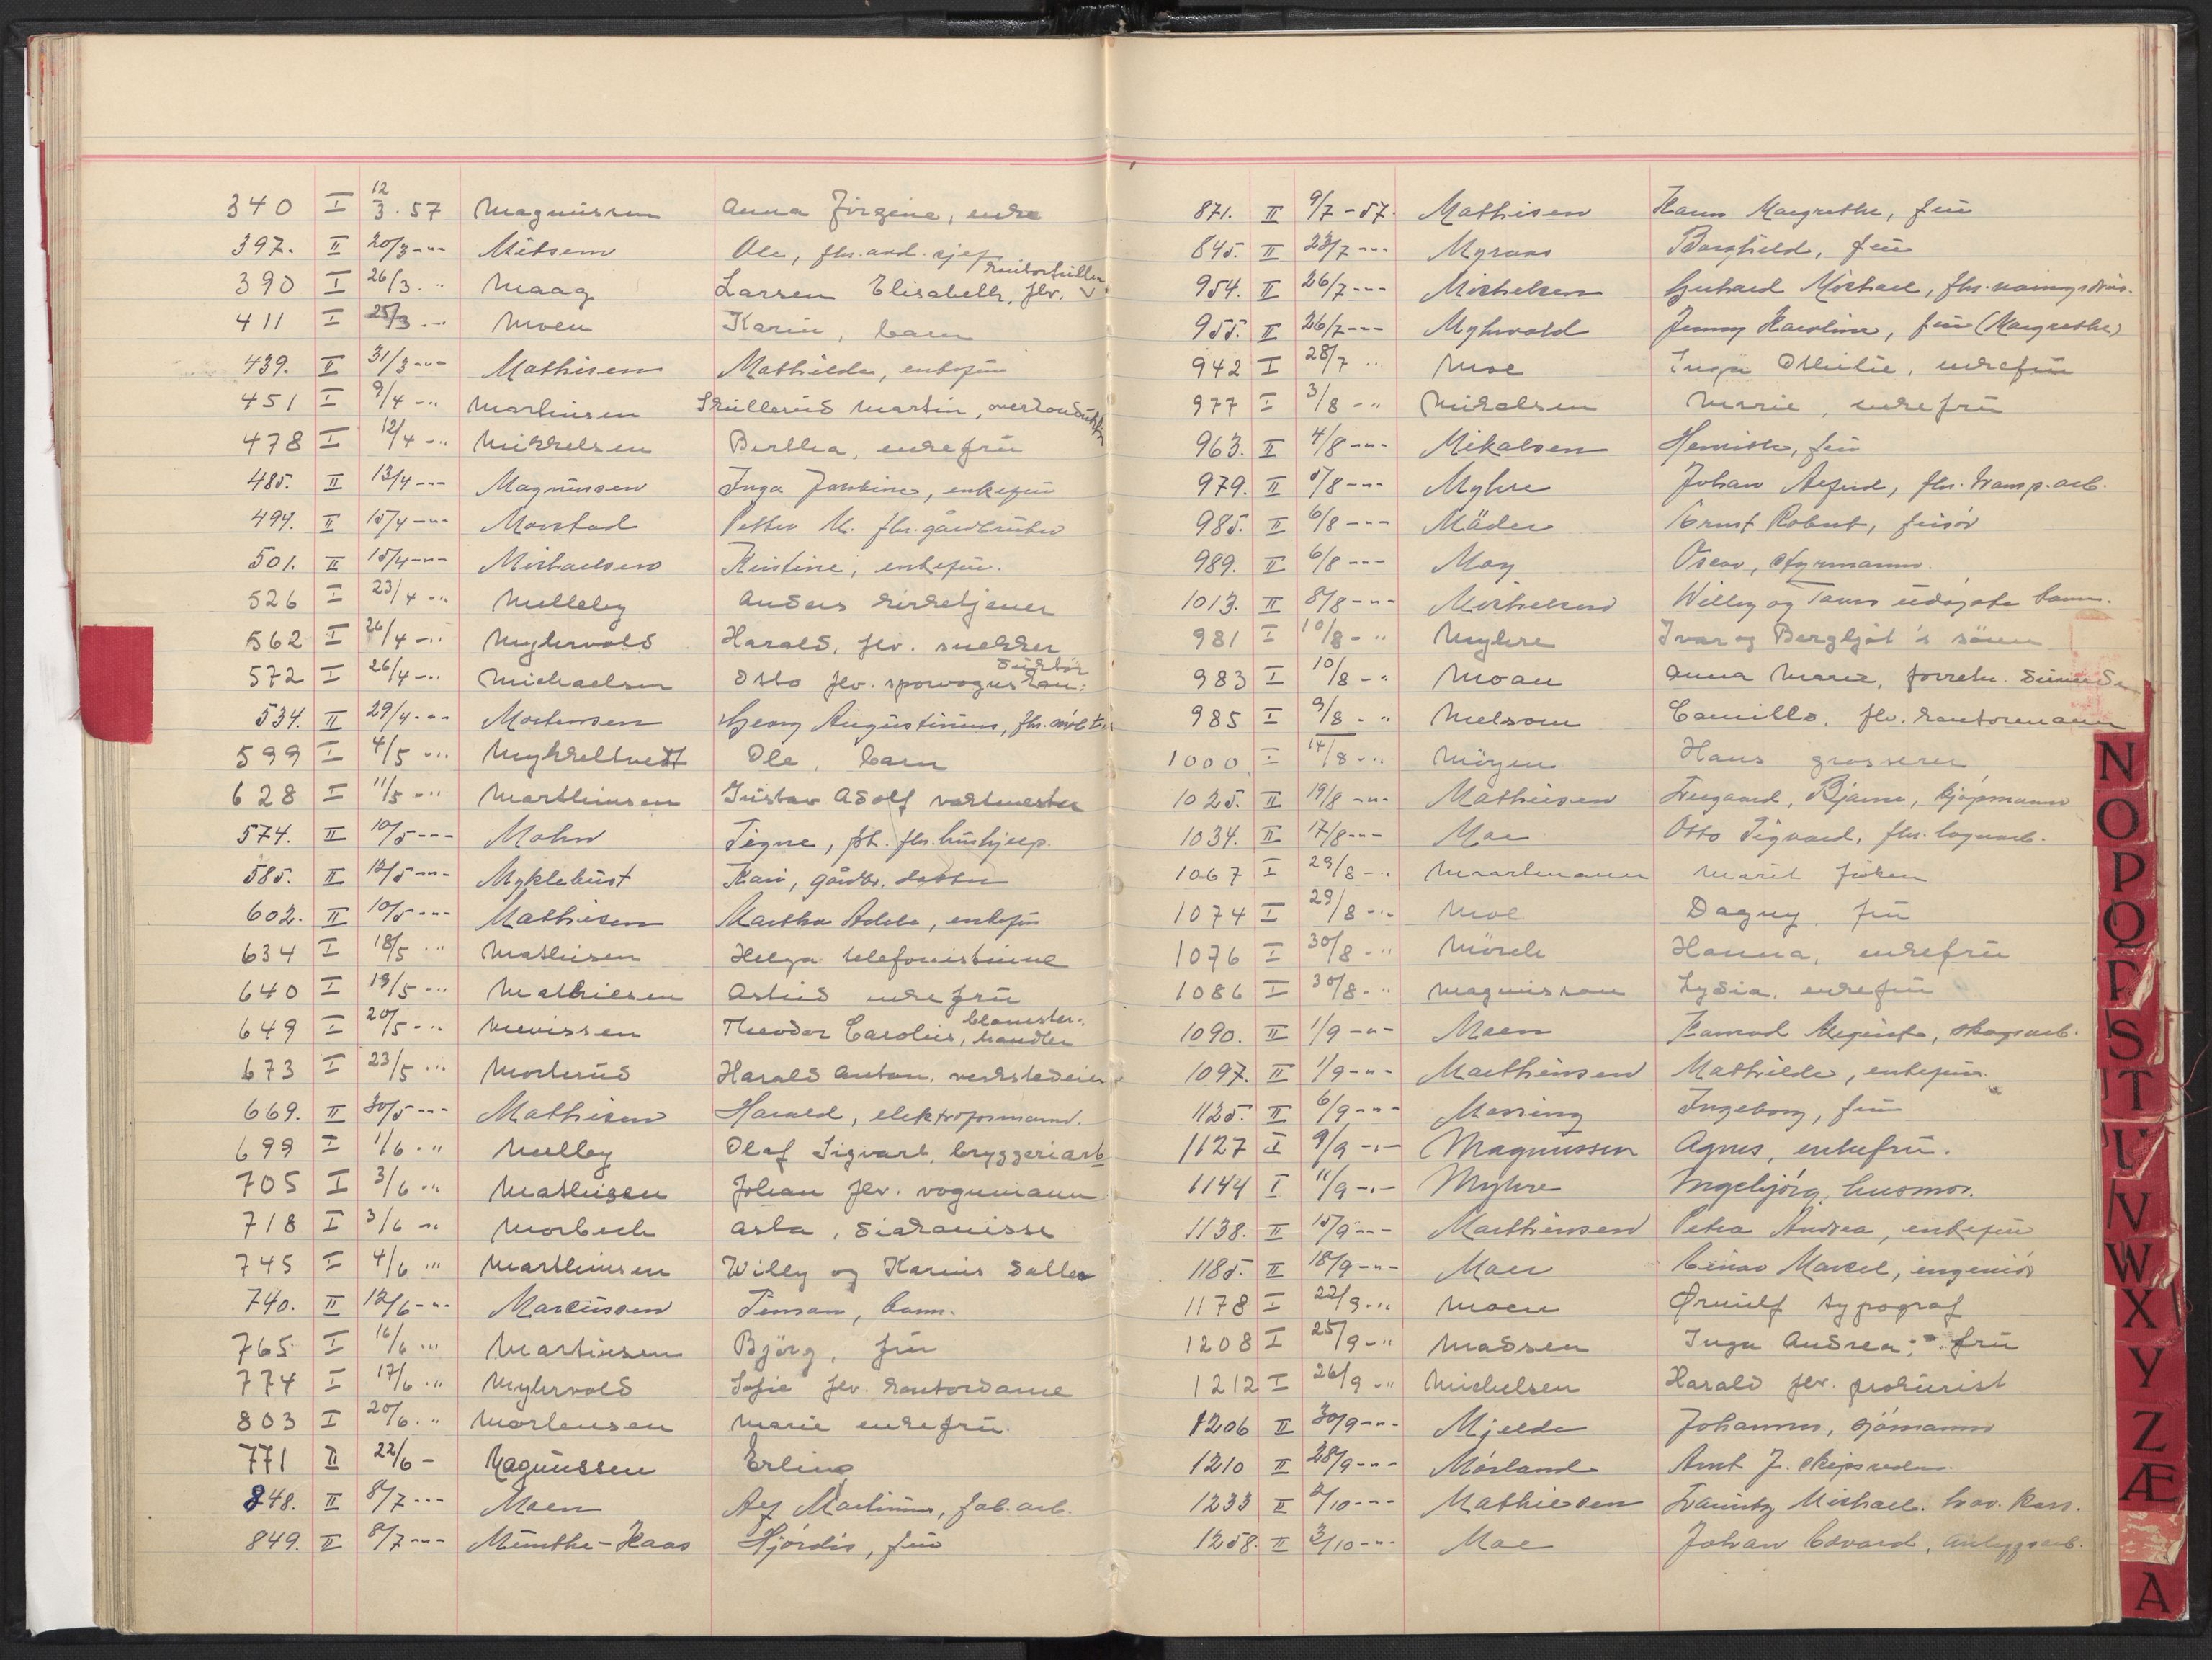 340 I 12/3. 57 Magnussen Anna Jörgine, enke
397. II 20/3 -"- Mitsem Ole, fhv. avd. sjef
390 I 26/3. " Maag Larsen Elisabeth, fhv.
411 I 25/3 -" Moen Karin, barn
439. II 31/3 -"- Mathisen Mathilde, enkefru
451 I 9/4 -" Martinsen Skullerud Martin, overkonduktör
478 I 12/4 -" Mikkelsen Berthea, enkefru
485. II 13/4 --- Magnussen Inga, enkefru
494. II 15/4 -"- Morstad Petter M. fhv. gårdbruker
501. II 15/4 -"- Michaelsen Kristine, enkefru.
526 I 23/4 -" Melleby Anders kirketjener
562 I 26/4 -" Myhrvold Harald, fhv. snekker
572 I 26/4 -" Michaelsen Otto fhv. sporvognskon: duktör
534. II 29/4 -"- Mortensen Georg Augustinius, fhv.
599 I 4/5 -" Mykheltvedt Ole, barn
628 I 11/5 -" Marthinsen Gustav Adolf vaktmester
574. II 10/5 --- Mohn Signe, fhv. hushjelp.
585. II 12/5 -"- Myklebust Kari, gårdbr. datter
602. II 10/5 --- Mathisen Martha Adele, enkefru
634 I 18/5 " Mathisen Helga telefonistinne
640 I 19/5 -" Mathiesen Astrid enkefru
649 I 20/5 -" Mevissen Theodor Carolus, blomster-handler
673 I 23/5 " Morterud Harald Anton, verkstedeier
669. II 30/5 --- Mathisen Harald, elektroformann.
699 I 1/6. " Melby Olaf Sigvart, bryggeriarb
705 I 3/6 -" Mathisen Johan fhv. vognmann
718 I 3/6 -" Morbech Asta, diakonisse
745 I 4/6 " Marthinsen Willy og Karins datter
740. II 12/6 -"- Marcussen barn.
765 I 16/6 " Martinsen Björg, fru
774 I 17/6 " Myhrvold Sofie fhv. kontordame
803 I 20/6. " Mortensen Marie enkefru.
771 II 22/6 - Magnussen Erling
848. II 8/7 --- Moen Alf Martinius, fab. arb.
849. II 8/7 -"- Munthe-Kaas Hjördis, fru
871. II 9/7 - 57. Mathisen Karen Margrethe, fru
845. II 23/7 -"- Myraas Borghild, fru
954. II 26/7 -"- Michelsen Gerhard Michael, fhv.
955. II 26/7 --- Myhrvold Jenny Karoline, fru (Margrethe)
942 I 28/7 " Moe Inga Othilie, enkefru
977 I 3/8 -" Mikalsen Marie, enkefru
963. II 4/8 -"- Mikalsen Henriette, fru
979. II 5/8 -"- Myhre Johan Alfred, fhv. transp. arb.
985. II 6/8 --- Mäder Ernst Robert, frisör
989. II 6/8 --- May Oscar, styrmann.
1013. II 8/8 -"- Michelsen Willy og udøpte barn.
981 I 10/8 - " Myhre Ivar og Bergljót's sönn
983 I 10/8 -" Moan Anna Marie, forretn.
985 I 9/8 - " Melsom Camilla, fhv. kontormann
1000 I 14/8 -" Möyen Hans grosserer
1025. II 19/8 -"- Mathiesen Bjarne, kjøpmann
1034. II 17/8 --- Moe Otto Sigvard, fhv.
1067 I 29/8 -" Maartmann Marit fröken
1074 I 29/8 -" Moe Dagny fru
1076 I 30/8 -" Mörch Hanna, enkefru
1086 I 30/8 -" Magnusson Lydia, enkefru
1090. II 1/9 -"- Moen Konrad August, skogsarb.
1097. II 1/9 -"- Marthinsen Mathilde, enkefru.
1125. II 6/9 -"- Mossing Ingeborg, fru
1127 I 9/9 -"- Magnussen Agnes, enkefru.
1144 I 11/9 -"- Myhre Ingebjörg, husmor.
1138. II 15/9 --- Marthinsen Petra Andrea, enkefru
1185. II 18/9 -"- Moen Einar Marcel, ingeniör
1178 I 22/9 -" Moen Ørnulf typograf
1208 I 25/9 -" Madsen Inga Andrea, fru
1212 I 26/9 -" Michelsen Harald fhv. prokurist
1206 II 30/9 -"- Mjelde Johannes, sjömann
1210 II 28/9 --- Mörland Arnt J. skipsreder
1233 II 2/10 --- Mathiesen Michael.
1258. II 3/10 --- Moe Johan Edvard, anleggsarb.
N
O
P
Q
R
S
T
U
V
W
X
Y
Z
Æ
A